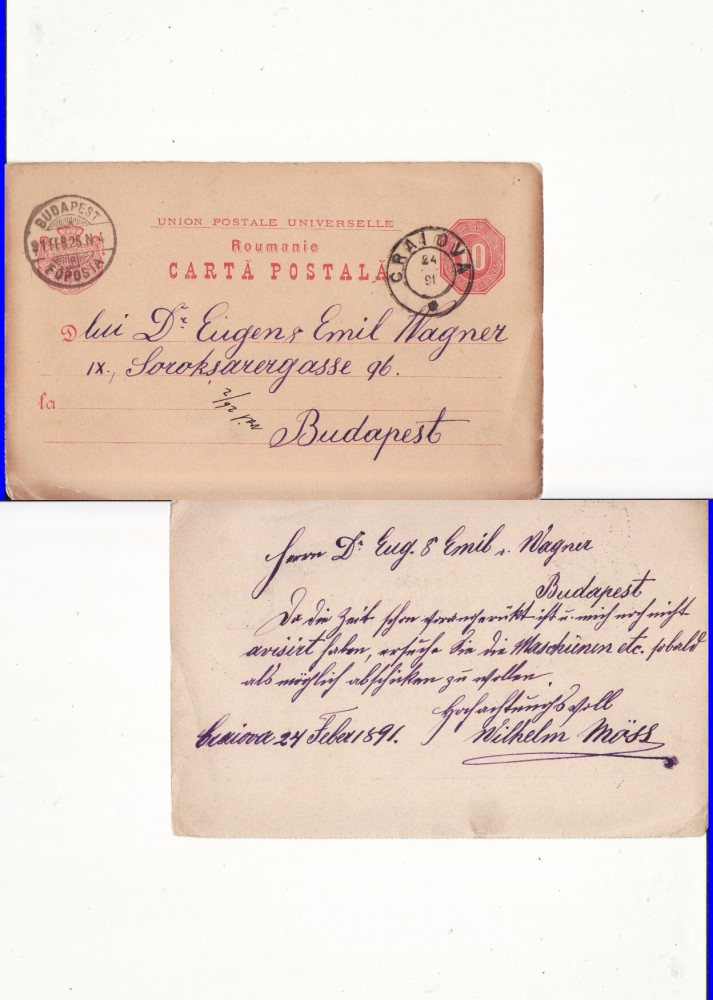 UNION POSTALE UNIVERSELLE
Roumanie
CARTĂ POSTALĂ
BUDAPEST
91 FEB. 25. N. 4
FŐPOSTA
CRAIOVA
24
91
10
D lui Dr. Eugen & Emil Wagner
IX., Soroksarergasse 96.
la
26/2
Budapest
Herrn Dr Eug. & Emil v. Wagner
Budapest
Da die Zeit schon vorangerükt ist u. mich noch nicht
avisirt haben, ersuche Sie die Maschienen etc. sobald
als möglich abschicken zu wollen.
Hochachtungsvoll
Craiova 24 Feber 1891. Wilhelm Möss